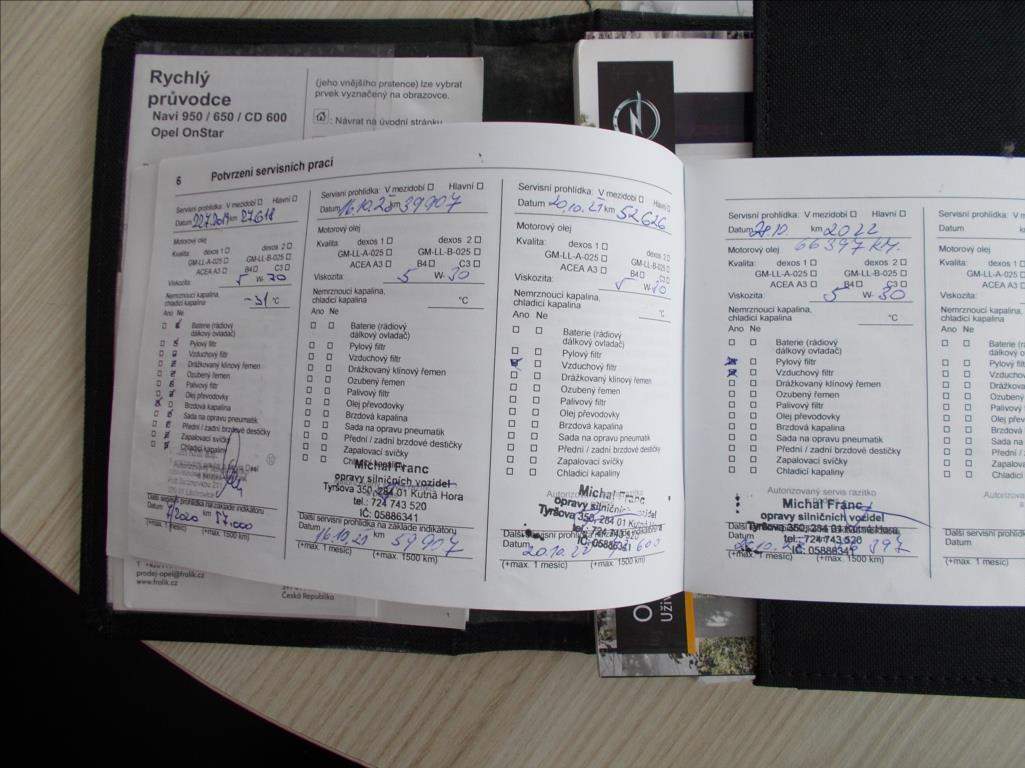 Rychlý
průvodce
Navi 950 / 650 / CD 600
Opel OnStar
(jeho vnějšího prstence) lze vybrat
prvek vyznačený na obrazovce.
: Návrat na úvodní stránku
6 Potvrzení servisních prací
Servisní prohlídka: V mezidobí Hlavní
Datum 22.7.2019 km 27618
Motorový olej
Kvalita: dexos 1 dexos 2
GM-LL-A-025 GM-LL-B-025
ACEA A3 B4 C3
Viskozita: 5 W- 30
Nemrznoucí kapalina,
chladicí kapalina -31 °C
Ano Ne
Baterie (rádiový
dálkový ovladač)
Pylový filtr
Vzduchový filtr
Drážkovaný klínový řemen
Ozubený řemen
Palivový filtr
Olej převodovky
Brzdová kapalina
Sada na opravu pneumatik
Přední / zadní brzdové destičky
Zapalovací svíčky
Chladicí kapaliny
Další servisní prohlídka na základě indikátoru
Datum 7/2020 km 57.000
(+max. 1 měsíc) (+max. 1500 km)
Servisní prohlídka: V mezidobí Hlavní
Datum 16.10.20 km 39907
Motorový olej
Kvalita: dexos 1 dexos 2
GM-LL-A-025 GM-LL-B-025
ACEA A3 B4 C3
Viskozita: 5 W- 30
Nemrznoucí kapalina,
chladicí kapalina °C
Ano Ne
Baterie (rádiový
dálkový ovladač)
Pylový filtr
Vzduchový filtr
Drážkovaný klínový řemen
Ozubený řemen
Palivový filtr
Olej převodovky
Brzdová kapalina
Sada na opravu pneumatik
Přední / zadní brzdové destičky
Zapalovací svíčky
Michal Franc
opravy silničních vozidel
Tyršova 350, 284 01 Kutná Hora
tel.: 724 743 520
IČ: 05886341
Další servisní prohlídka na základě indikátoru
Datum 16.10.21 km 59907
(+max. 1 měsíc) (+max. 1500 km)
Servisní prohlídka: V mezidobí Hlavní
Datum 20.10.21 km 52626
Motorový olej
Kvalita: dexos 1 dexos 2
GM-LL-A-025 GM-LL-B-025
ACEA A3 B4 C3
Viskozita: 5 W- 30
Nemrznoucí kapalina,
chladicí kapalina °C
Ano Ne
Baterie (rádiový
dálkový ovladač)
Pylový filtr
Vzduchový filtr
Drážkovaný klínový řemen
Ozubený řemen
Palivový filtr
Olej převodovky
Brzdová kapalina
Sada na opravu pneumatik
Přední / zadní brzdové destičky
Zapalovací svíčky
Chladicí kapaliny
Michal Franc
opravy silničních vozidel
Tyršova 350, 284 01
tel.: 724 743
IČ: 05886341
Datum 20.10.22
(+max. 1 měsíc) (+max. 1500 km)
Servisní prohlídka: V mezidobí Hlavní
Datum 28.10 km 2022
Motorový olej 66397 KM.
Kvalita: dexos 1 dexos 2
GM-LL-A-025 GM-LL-B-025
ACEA A3 B4 C3
Viskozita: 5 W- 30
Nemrznoucí kapalina,
chladicí kapalina °C
Ano Ne
Baterie (rádiový
dálkový ovladač)
Pylový filtr
Vzduchový filtr
Drážkovaný klínový řemen
Ozubený řemen
Palivový filtr
Olej převodovky
Brzdová kapalina
Sada na opravu pneumatik
Přední / zadní brzdové destičky
Zapalovací svíčky
Chladicí kapaliny
Autorizovaný servis razítko
Michal Franc
opravy silničních vozidel
Tyršova 350, 284 01 Kutná Hora
tel.: 724 743 520
IČ: 05886341
Datum
(+max. 1 měsíc) (+max. 1500 km)
Servisní prohlídka:
Datum
Motorový olej
Kvalita:
Viskozita:
Nemrznoucí kapalina,
chladicí kapalina
Ano Ne
Další servisní
Datum
(+max. 1 měsíc)
prodej-opel@frolik.cz
www.frolik.cz
Česká Republika